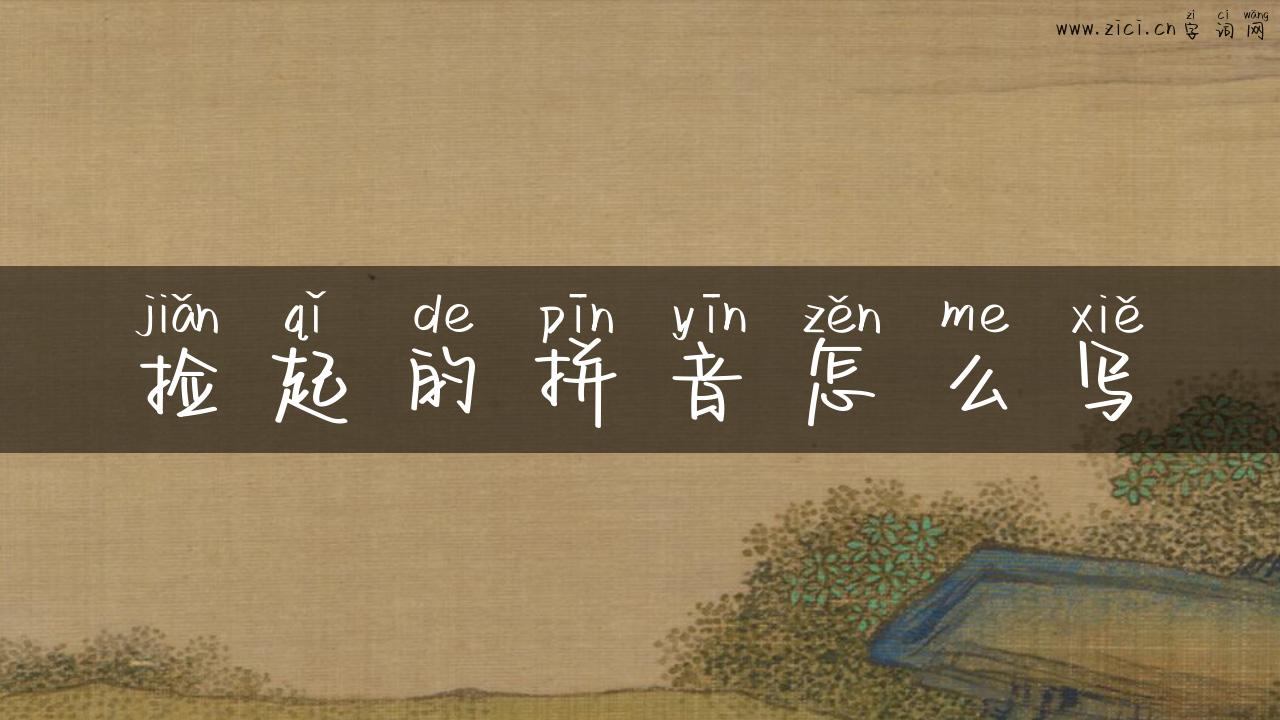 zi ci wǎng
www.zici.cn 字词网
jiǎn qǐ de pīn yīn zěn me xiě
捡起的拼音怎么写